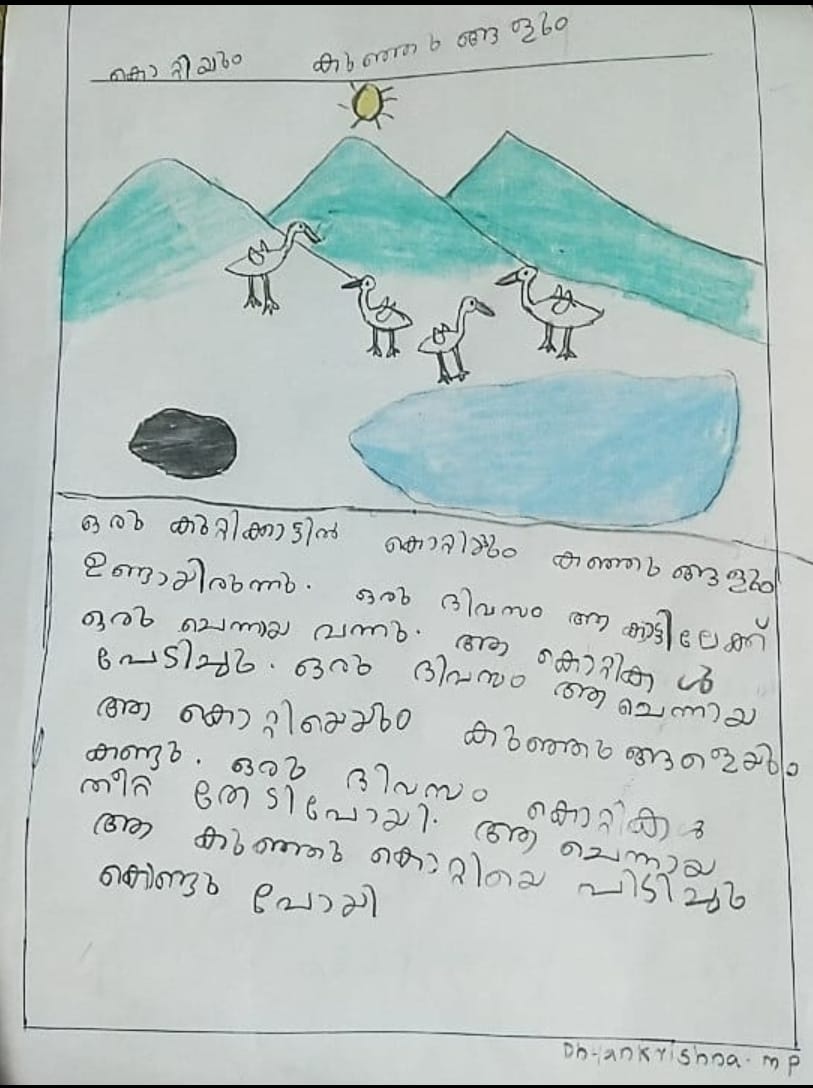 കൊറ്റിയും കുഞ്ഞുങ്ങളും
ഒരു കുറ്റിക്കാട്ടിൽ കൊറ്റിയും കുഞ്ഞുങ്ങളും
ഉണ്ടായിരുന്നു. ഒരു ദിവസം ആ കാട്ടിലേക്ക്
ഒരു ചെന്നായ വന്നു. ആ കൊറ്റികൾ
പേടിച്ചു. ഒരു ദിവസം ആ ചെന്നായ
ആ കൊറ്റിയെയും കുഞ്ഞുങ്ങളെയും
കണ്ടു. ഒരു ദിവസം കൊറ്റികൾ
തീറ്റ തേടിപോയി. ആ ചെന്നായ
ആ കുഞ്ഞു കൊറ്റിയെ പിടിച്ചു
കൊണ്ടു പോയി
Dhyankrishna. M P